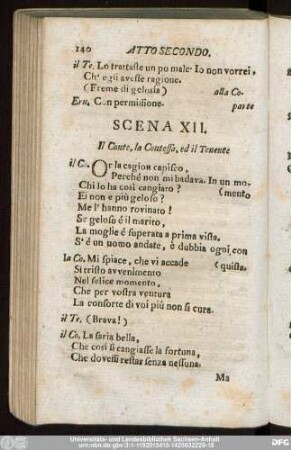 140 ATTO SECONDO.
il Te. Lo trattaste un po male. Io non vorrei,
Ch' egli avesse ragione.
(Freme di gelosia) alla Co-
Ern. Con permissione. parte
SCENA XII.
Il Conte, la Contessa, ed il Tenente
il Co. Or la cagion capisco,
Perché non mi badava. In un mo-
Chi lo ha così cangiato? (mento
Ei non e più geloso?
Me l' hanno rovinato!
Se geloso é il marito,
La moglie é superata a prima vista.
S' é un uomo andate, è dubbia ogni con
la Co. Mi spiace, che vi accade (quista.
Si tristo avvenimento
Nel felice momento,
Che per vostra ventura
La consorte di voi più non si cura.
il Te. (Brava!)
il Co. La saria bella,
Che così si cangiasse la fortuna,
Che dovessi restar senza nessuna.
Ma
Universitäts- und Landesbibliothek Sachsen-Anhalt
DFG